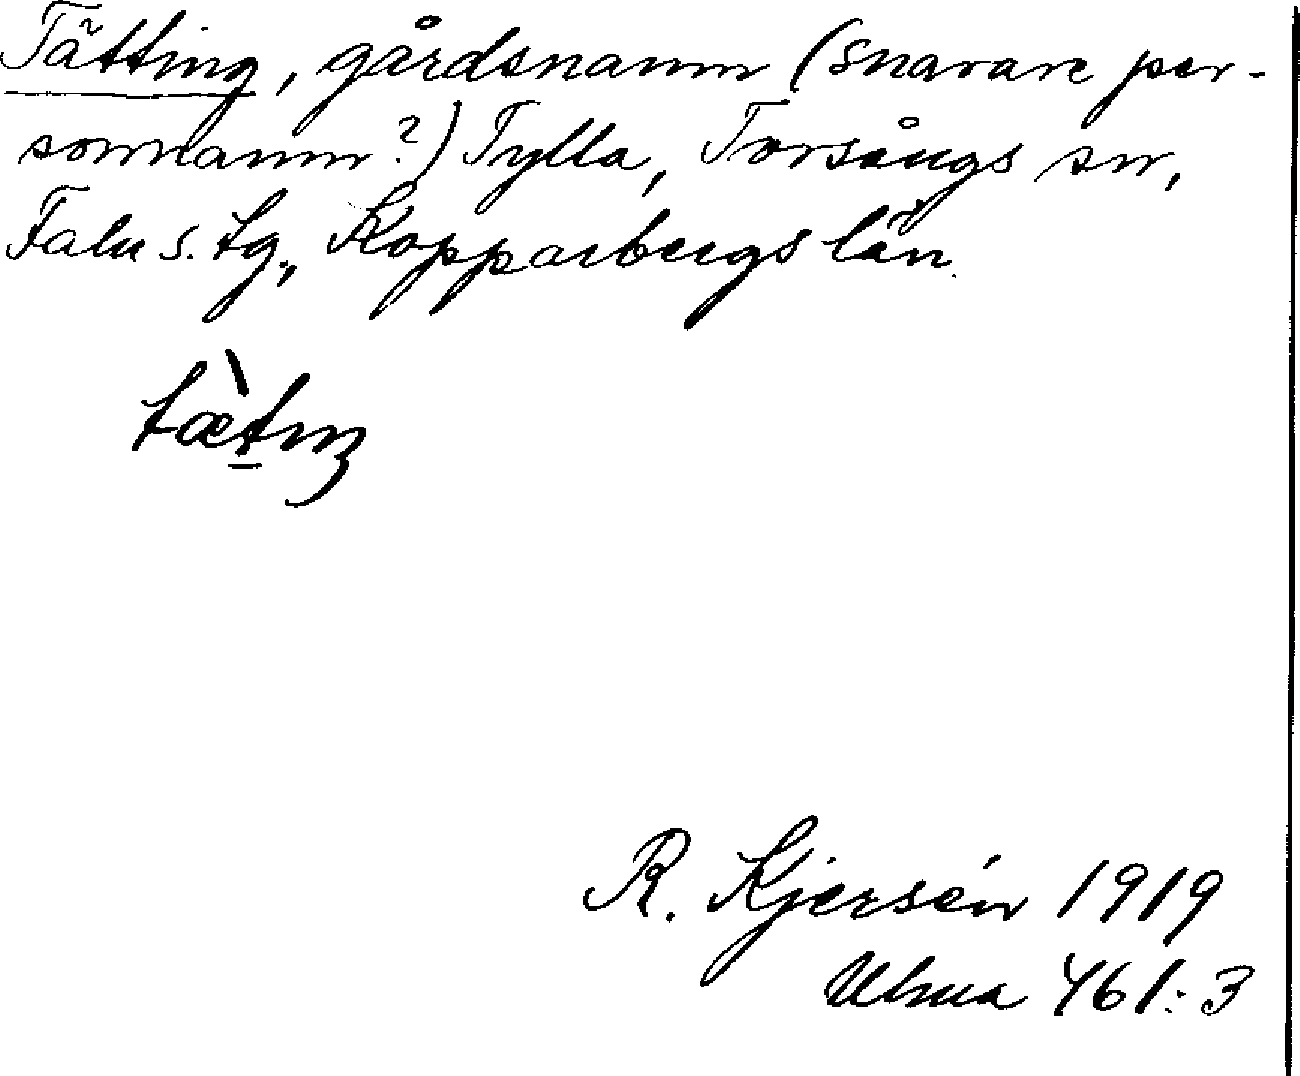 Tätting, gårdsnamn (snarare per-
sonnamn?) Tylla, Torsångs sn,
Falu s. tg., Kopparbergs län.
tæ̀tıŋ
R. Kjersén 1919
Ulma 461:3